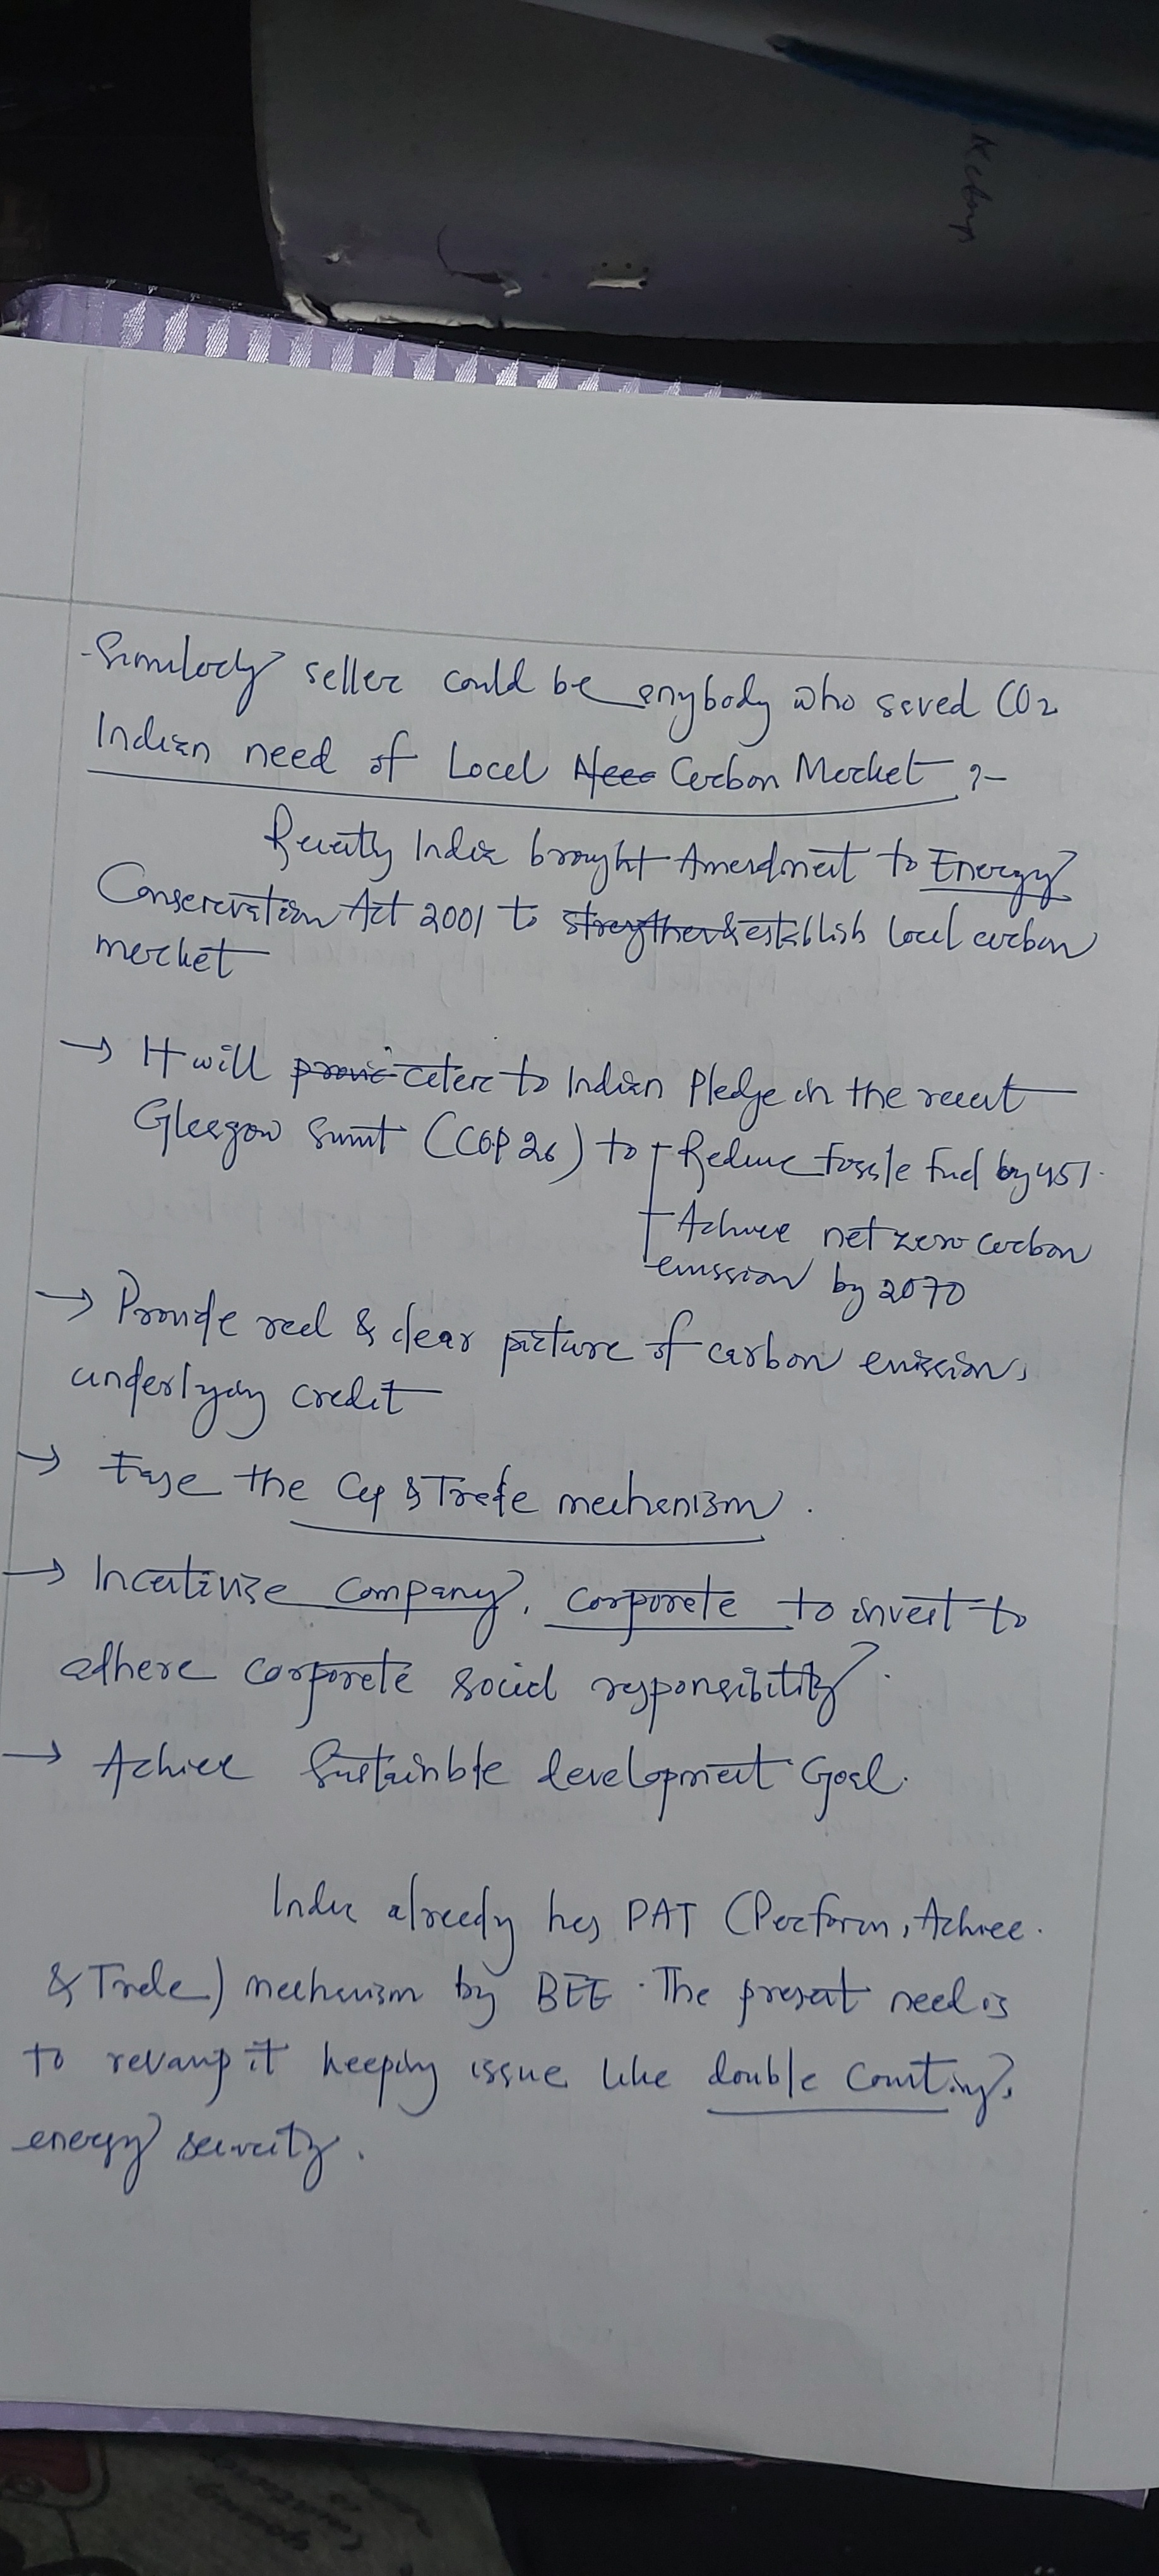 Similarly seller could be anybody who saved CO2
Indian need of Local Nee Carbon Market :-
Recently India brought Amendment to Energy
Conservation Act 2001 to strengthen & establish local carbon
market
→ It will provi cater to Indian Pledge in the recent
Glasgow Sumit (COP 26) to Reduce fossle fuel by 45%
Achieve net zero carbon
emission by 2070
→ Provide real & clear picture of carbon emission,
underlying credit
→ Ease the Cap & Trade mechanism.
→ Incentivise company, corporate to invest to
adhere corporate social responsibility.
→ Achieve Sustainble development Goal.
India already has PAT (Perform, Achieve
& Trade) mechanism by BEE. The present need is
to revamp it keeping issue like double counting,
energy security.